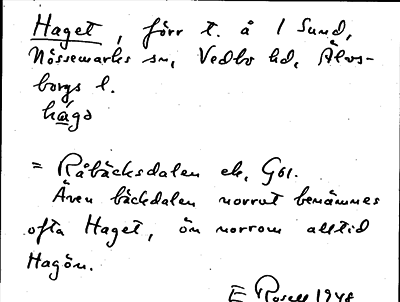 Haget, förr t. å 1 Sund,
Nössemarks sn, Vedbo hd, Älvs-
borgs l.
hágə
= Råbäcksdalen ek, Göl.
Även bäckdalen norrut benämnes
ofta Haget, ön norrom alltid
Hagön.
E Rosell 1948